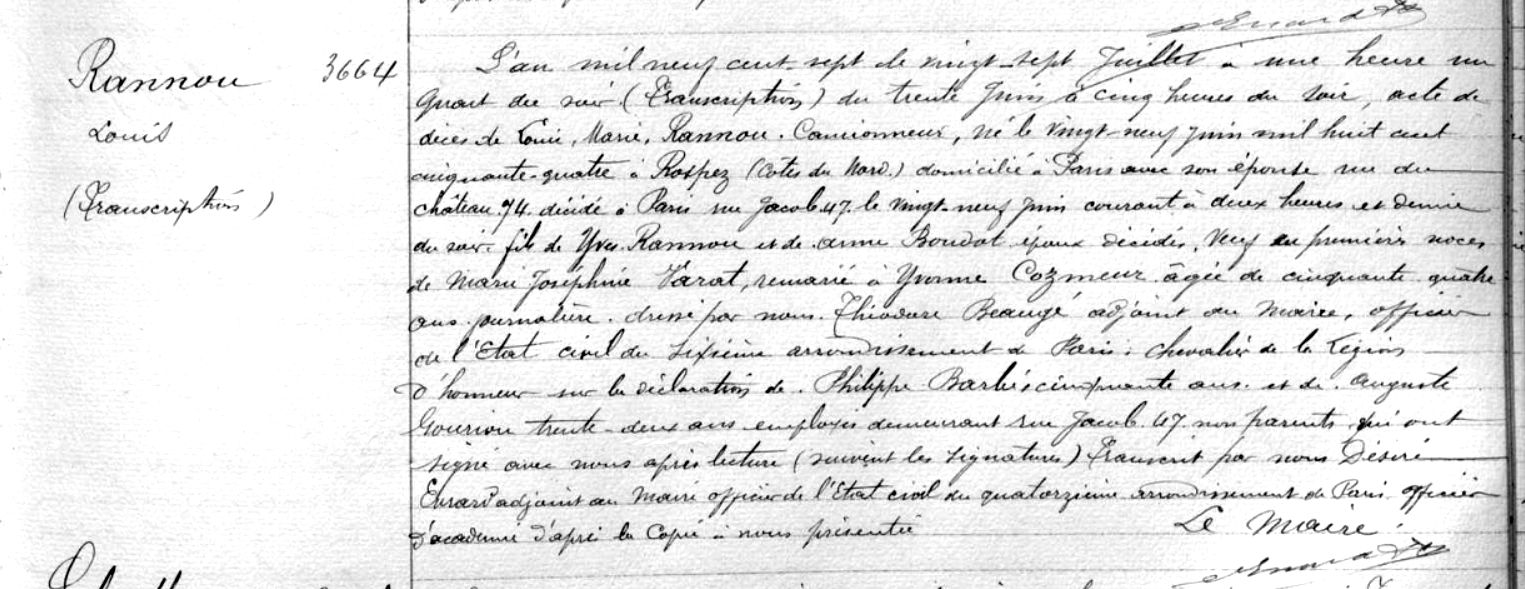 Rannou 3664
Louis
(Transcription)
L'an mil neuf cent sept le vingt-sept Juillet à une heure un
quart du soir (Transcription) du trente Juin à cinq heures du soir, acte de
décès de Louis, Marie, Rannou. Camionneur, né le vingt-neuf juin mil huit cent
cinquante-quatre à Rospez (Côtes du Nord.) domicilié à Paris avec son épouse rue du
château 74. décédé à Paris rue Jacob 47. le vingt-neuf juin courant à deux heures et demie
du soir. fils de Yves Rannou et de anne Boudot époux décédés, Veuf en premières noces
de Marie Joséphine Varat, remarié à Yvonne Cozmeur âgée de cinquante quatre
ans. journalière. dressé par nous. Théodore Beaugé adjoint au Maire, officier
de l'Etat civil du sixième arrondissement de Paris, chevalier de la Légion
d'honneur sur la déclaration de. Philippe Barbé cinquante ans. et de. Auguste
Gouriou trente-deux ans employés demeurant rue Jacob. 47. non parents qui ont
signé avec nous après lecture (suivent les signatures) Transcrit par nous Désiré
adjoint au Maire officier de l'Etat civil du quatorzième arrondissement de Paris officier
d'académie d'après la copie à nous présentée
Le Maire.